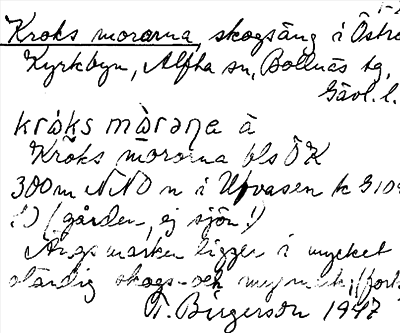 Kroks morarna, skogsäng i Östra
Kyrkbyn, Alfta sn, Bollnäs tg,
Gävl. l.
kråks mòraṇa ä
Kroks morarna bls ÖK
300m NNO n i Ufvasen k G109
(gården, ej sjön!)
Ängsmarken ligger i mycket
oländig skogs- och myrmark, (forts
T. Birgerson 1947